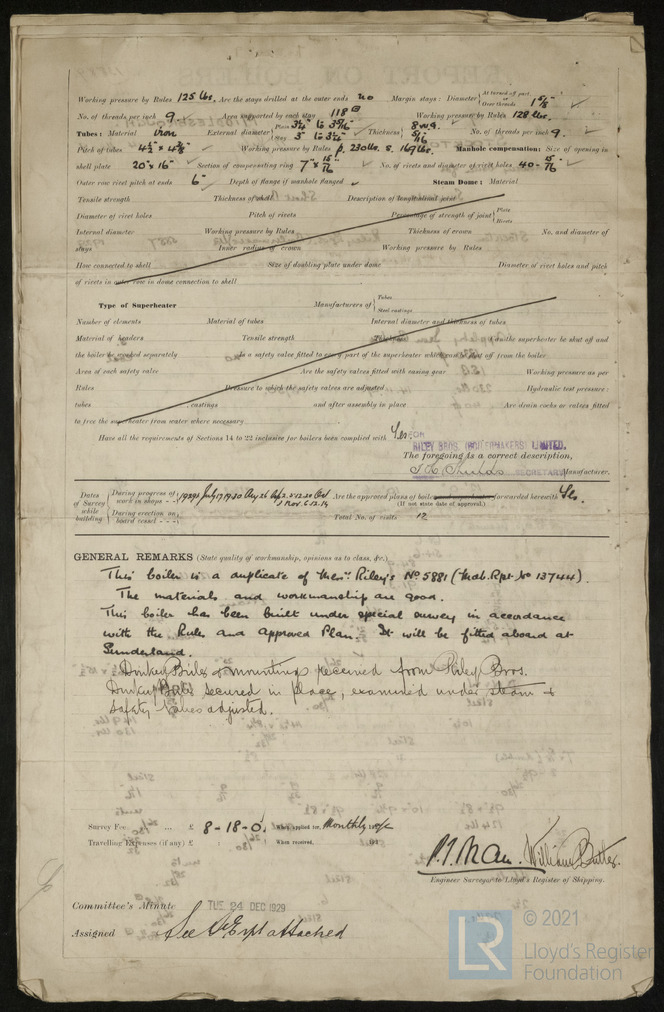 Working pressure by Rules 125 lbs. Are the stays drilled at the outer ends no Margin stays: Diameter { At turned off part, or Over threads 1 5/8"
No. of threads per inch 9 Area supported by each stay 118 Working pressure by Rules 128 lbs.
Tubes: Material iron External diameter { Plain 3¼" to 3 5/16" Stay 3" to 3¼" Thickness { 8 W.G. 5/16 No. of threads per inch 9.
Pitch of tubes 4½" x 4 5/8" Working pressure by Rules p. 230 lbs s. 169 lbs. Manhole compensation: Size of opening in
shell plate 20" x 16" Section of compensating ring 7" x 15/16 No. of rivets and diameter of rivet holes 40 - 15/16
Outer row rivet pitch at ends 6" Depth of flange if manhole flanged Steam Dome: Material
Tensile strength Thickness of shell Description of longitudinal joint
Diameter of rivet holes Pitch of rivets Percentage of strength of joint { Plate Rivets
Internal diameter Working pressure by Rules Thickness of crown No. and diameter of
stays Inner radius of crown Working pressure by Rules
How connected to shell Size of doubling plate under dome Diameter of rivet holes and pitch
of rivets in outer row in dome connection to shell
Type of Superheater Manufacturers of { Tubes Steel castings
Number of elements Material of tubes Internal diameter and thickness of tubes
Material of headers Tensile strength Thickness Can the superheater be shut off and
the boiler be worked separately Is a safety valve fitted to every part of the superheater which can be shut off from the boiler
Area of each safety valve Are the safety valves fitted with easing gear Working pressure as per
Rules Pressure to which the safety valves are adjusted Hydraulic test pressure:
tubes , castings and after assembly in place Are drain cocks or valves fitted
to free the superheater from water where necessary
Have all the requirements of Sections 14 to 22 inclusive for boilers been complied with Yes
FOR
RILEY BROS. (BOILERMAKERS) LIMITED.
The foregoing is a correct description,
SECRETARY Manufacturer.
Dates of Survey while building { During progress of work in shops - - 1929 July 17, 19, 30 Aug 26 Are the approved plans of boiler and superheater forwarded herewith Yes.
(If not state date of approval.)
During erection on board vessel - - - Total No. of visits 12
GENERAL REMARKS (State quality of workmanship, opinions as to class, &c.)
This boiler is a duplicate of Messrs. Riley's No 5881 (Mdb. Rpt. No 13744).
The materials and workmanship are good.
This boiler has been built under special survey in accordance
with the Rules and approved Plan. It will be fitted aboard at
Sunderland.
Donkey Boiler & mountings received from Riley Bros.
Donkey Boiler secured in place, examined under steam &
safety valves adjusted.
Survey Fee ... ... £ 8-18-0. When applied for, Monthly a/c
Travelling Expenses (if any) £ : : When received, 19
William Butter.
Engineer Surveyor to Lloyd's Register of Shipping.
Committee's Minute TUE 24 DEC 1929
Assigned See attached
LR
© 2021
Lloyd's Register
Foundation